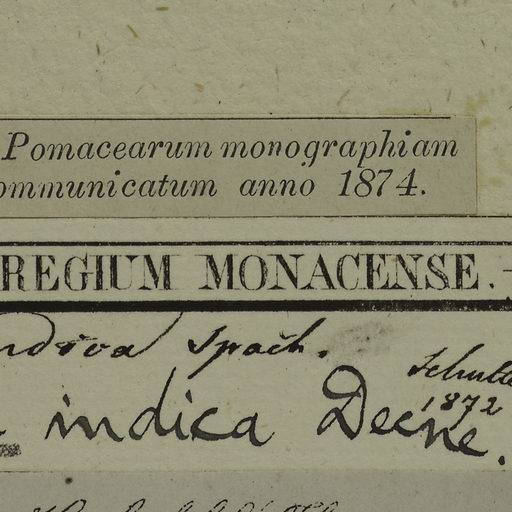 Pomacearum monographiam
ommunicatum anno 1874.
REGIUM MONACENSE.
Spach.
1872
indica Decne.